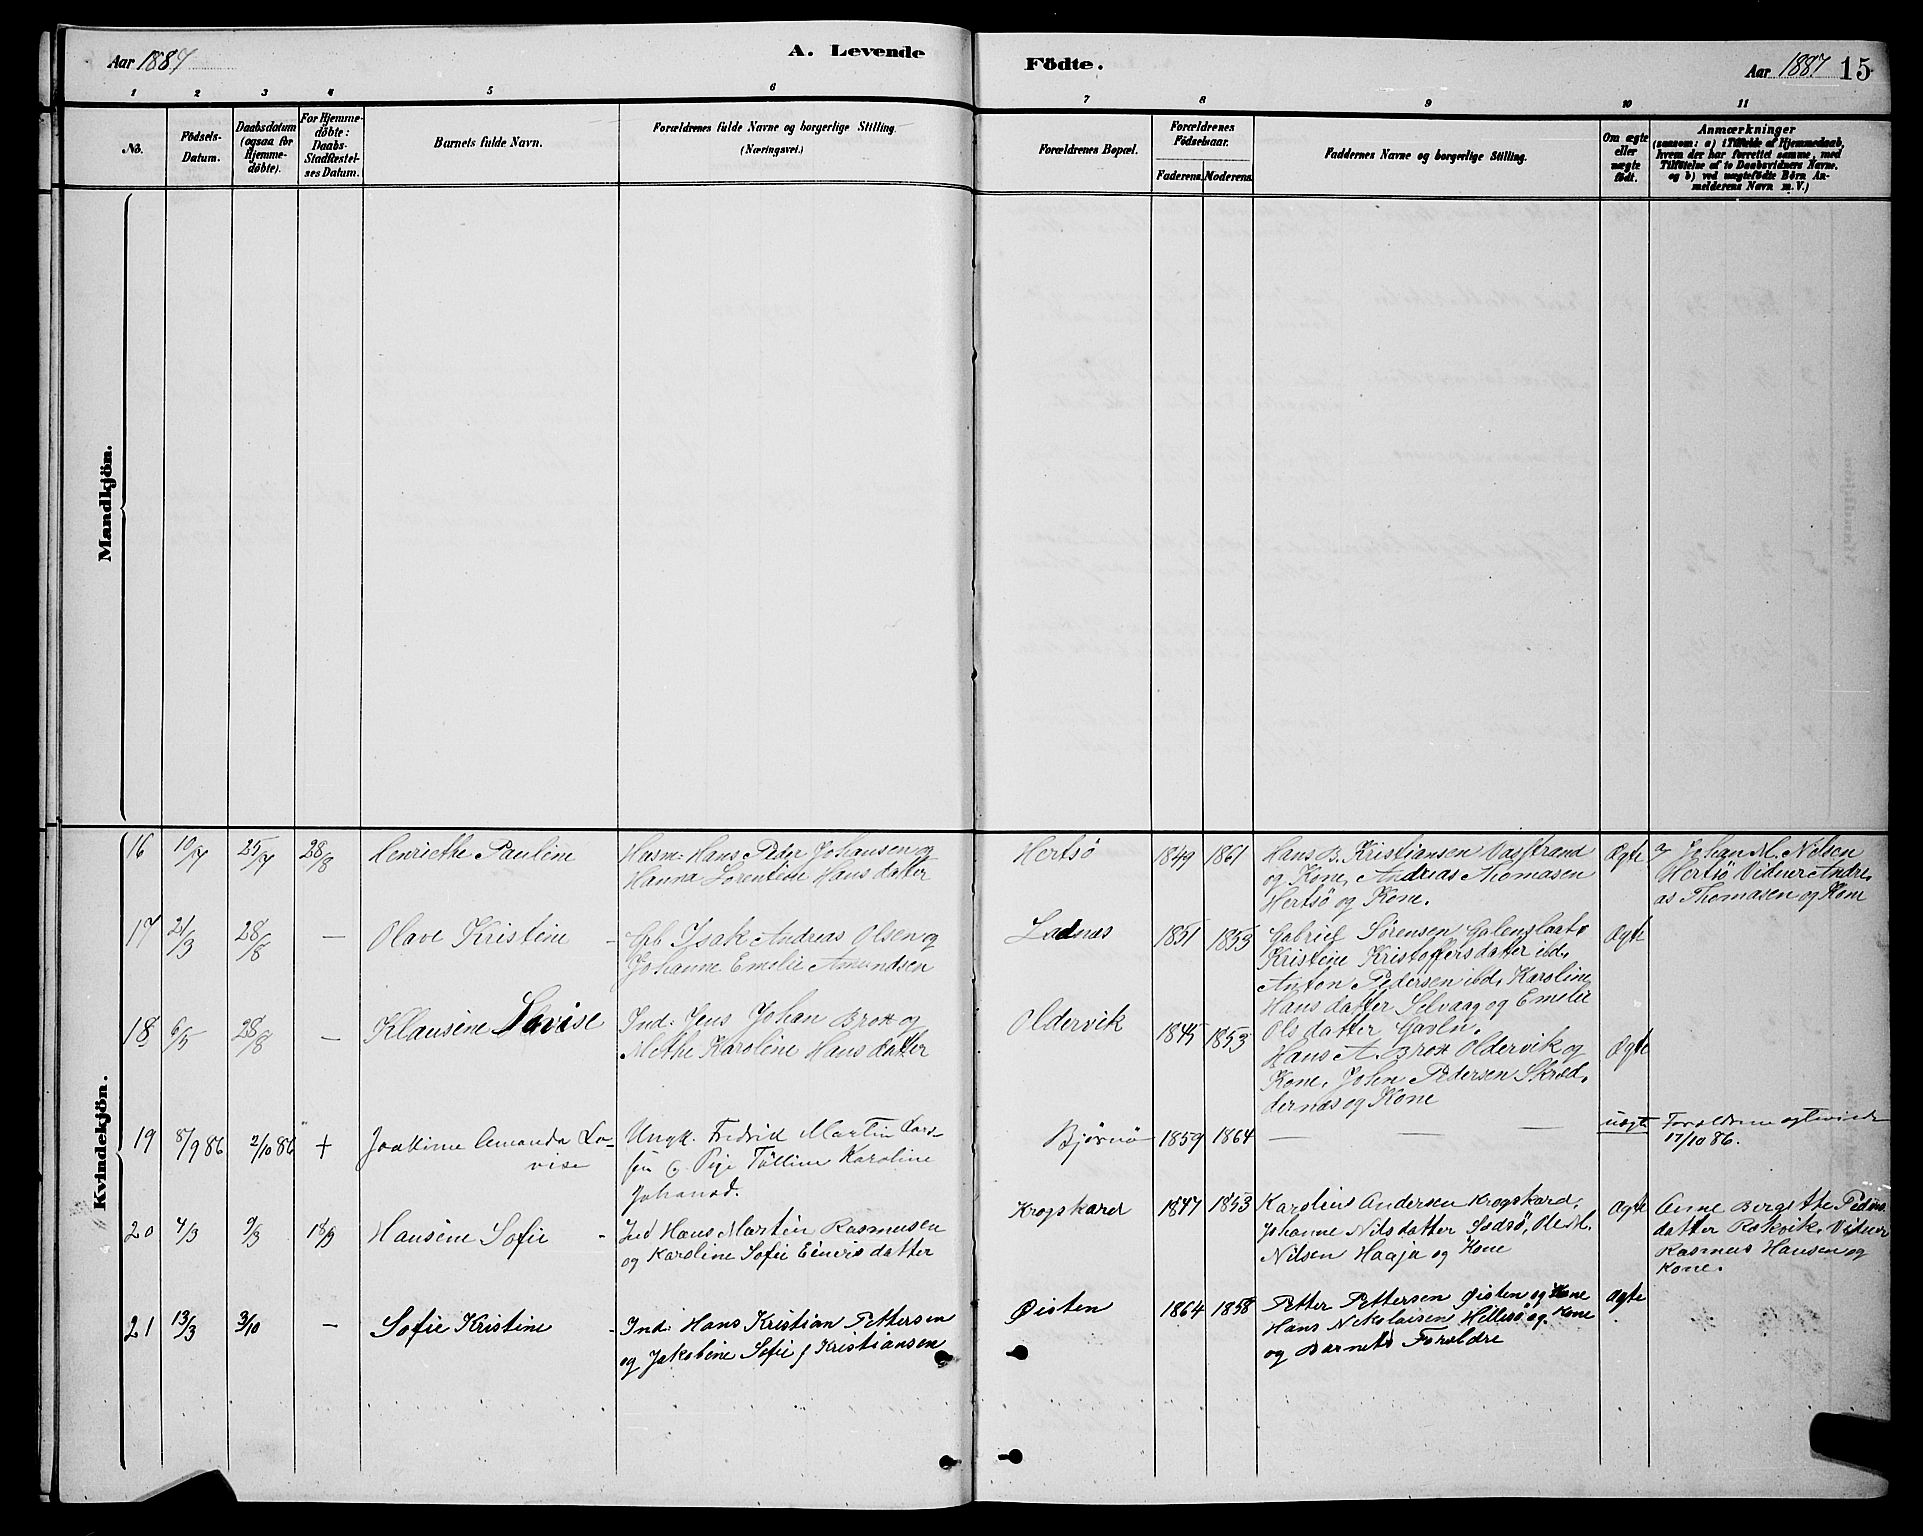 Aar 1887
A. Levende
Födte.
Aar 1887 15
1 2 3 4 5 6 7 8 9 10 11
No.
Födsels-
Datum.
Daabsdatum
(ogsaa for
Hjemme-
döbte).
For Hjemme-
döbte:
Daabs-
Stadfestel-
ses Datum.
Barnets fulde Navn.
Forældrenes fulde Navne og borgerlige Stilling.
(Næringsvei.)
Forældrenes Bopæl.
Forældrenes
Födselsaar.
Faderens. Moderens.
Faddernes Navne og borgerlige Stilling.
Om ægte
eller
uægte
födt.
Anmærkninger
(saasom: a) i Tilfælde af Hjemmedaab,
hvem der har forrettet samme, med
Tilföielse af to Daabsvidners Navne,
og b) ved uægtefödte Börn An-
melderens Navn m. V.)
Mandkjön.
Kvindekjön.
16 10/7 25/7 28/8 Henriethe Pauline
Husm: Hans Peder Johansen og
Hanna Lorentine Hansdatter
Hertsö 1849 1861
Hans B. Kristiansen Vasstrand
og Kone, Andreas Thomasen
Hertsö og Kone.
Ægte
Johan M. Nilsen
Hertsö Vidner Andre-
as Thomasen og Kone
17 21/3 28/8 — Olave Kristine -
Grb Isak Andreas Olsen og
Johanne Emelie Amundsen
Ladnæs 1851 1853
Gabriel Sörensen
Kristine Kristoffersdatter ibd,
Anton Pedersen ibd, Karoline
Hansdatter Selvaag og Emelie
Olsdatter
Ægte
18 6/5 28/8 — Klausene Lovise
Ind: Jens Johan Brox og
Methe Karoline Hansdatter
Oldervik 1845 1853
Hans A. Brox Oldervik og
Kone, Johan Pedersen Skræd-
dernæs og Kone
Ægte
19 8/9 86 2/10 86 + Joakime Amanda Lo-
vise
Ungk. Fredrik Martin Lars-
sen og Pige Tølline Karoline
Johansd.
Bjørnø 1859 1864 — — —
uægte
Foreldrene egteviede
17/10 86.
20 4/3 9/3 18/9 Hansine Sofie -
Ind Hans Martin Rasmusen
og Karoline Sofie Einersdatter
Krogskarer 1847 1853
Karoline Andersen Krogskard,
Johanne Nilsdatter Ladsø, Ole M.
Nilsen Haaja og Kone
Ægte
Anne Bergitte Peders-
datter Rakvik, Vidner
Rasmus Hansen og
Kone.
21 13/3 3/10 — Sofie Kristine -
Ind: Hans Kristian Pettersen
og Jakobine Sofie f Kristiansen
Øisten 1864 1858
Petter Pettersen Øisten og Kone
Hans Nikolaisen Hellesø og Kone
og Barnets Foreldre
Ægte